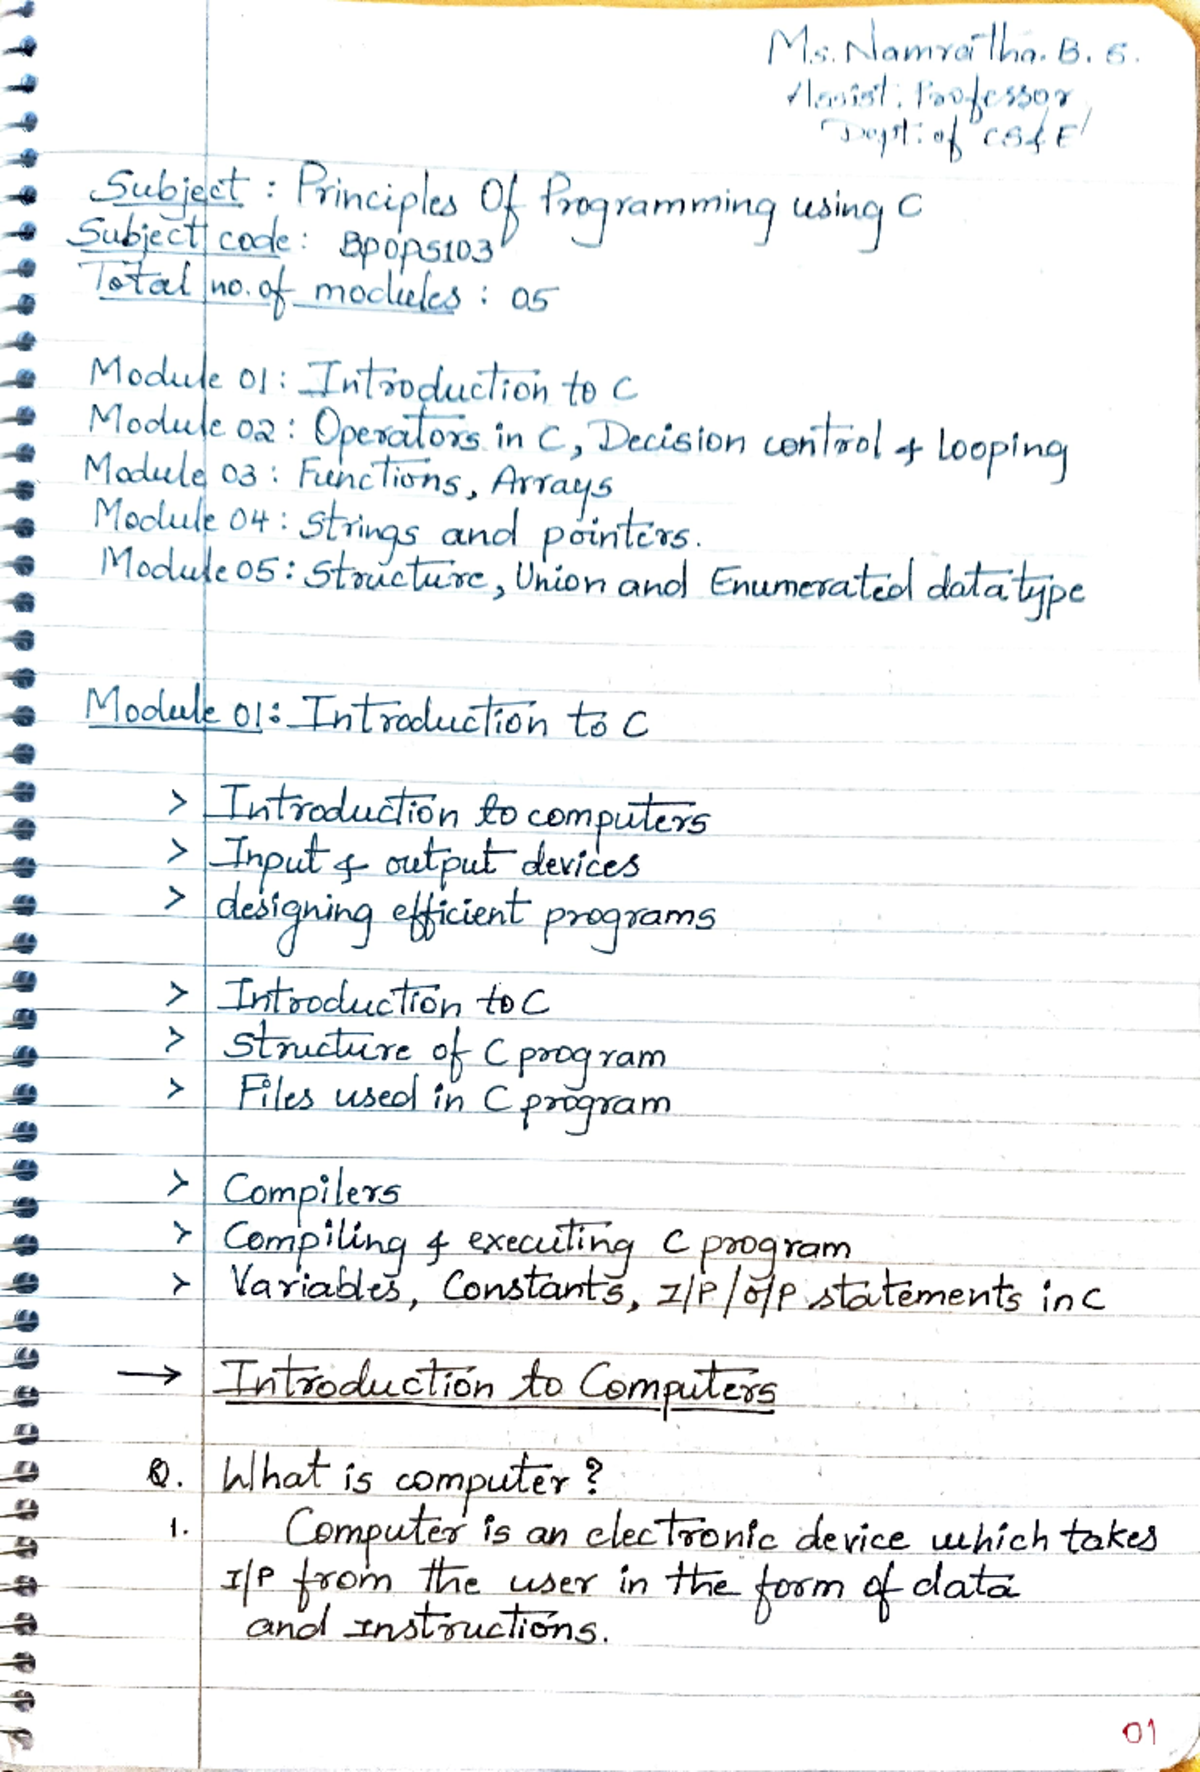 Ms. Namratha. B. S.
Assist. Professor
Dept: of CS & E
Subject : Principles Of Programming using C
Subject code : BPOPS103
Total no. of modules : 05
Module 01 : Introduction to C
Module 02 : Operators in C, Decision control & looping
Module 03 : Functions, Arrays
Module 04 : Strings and pointers.
Module 05 : Structure, Union and Enumerated data type
Module 01 : Introduction to C
> Introduction to computers
> Input & output devices
> designing efficient programs
> Introduction to C
> Structure of C program
> Files used in C program
> Compilers
> Compiling & executing C program
> Variables, Constants, I/P / O/P statements in C
→ Introduction to Computers
Q. What is computer ?
1. Computer is an electronic device which takes
I/P from the user in the form of data
and Instructions.
01